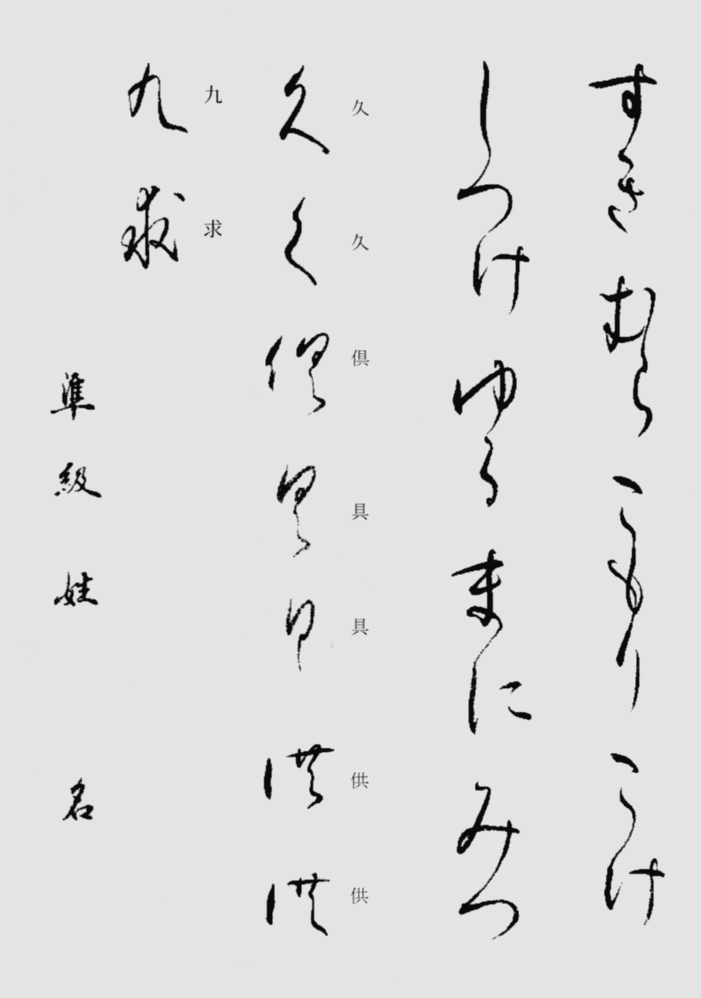 すき むら こもり こけ
しつけ ゆる まに みつ
久 久 倶 具 具 供 供
久 久 倶 具 具 供 供
九 求
九 求
準 級 姓 名